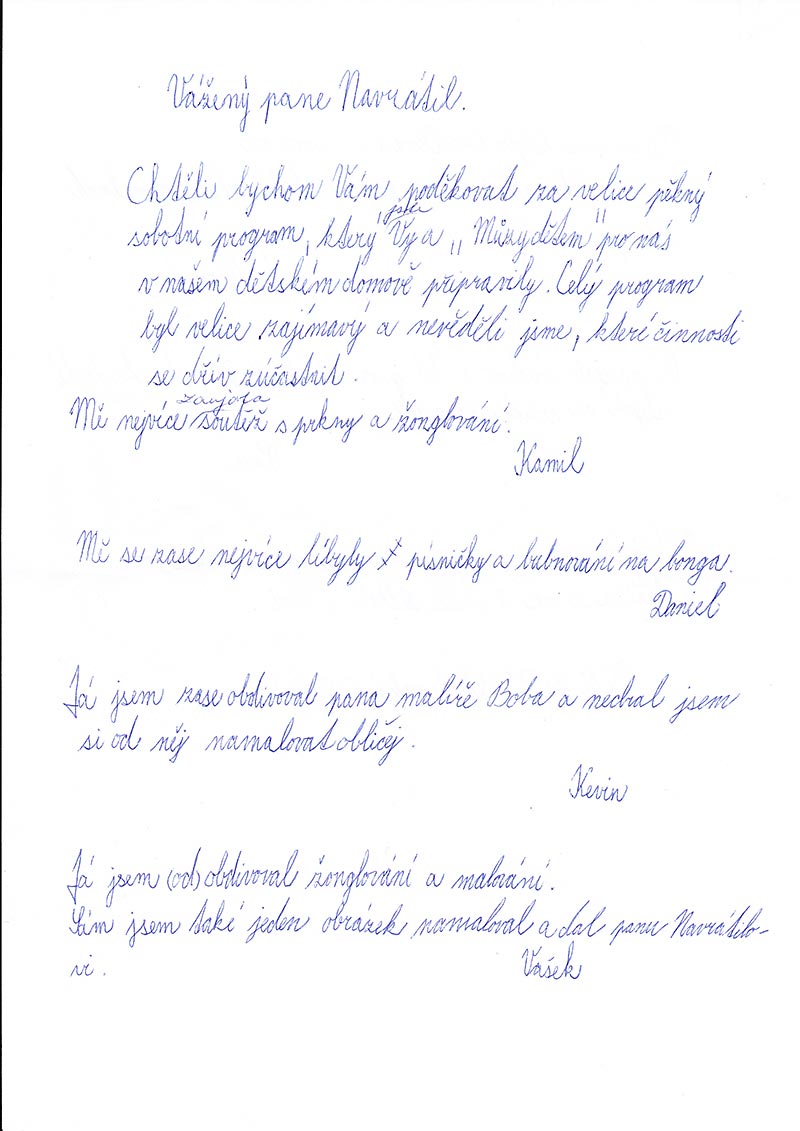 Vážený pane Navrátil.
Chtěli bychom Vám poděkovat za velice pěkný
sobotní program, který jste Vy a „Můzy dětem" pro nás
v našem dětském domově připravily. Celý program
byl velice zajímavý a nevěděli jsme, které činnosti
se dřív zúčastnit.
Mě nejvíce zaujala soutěž s prkny a žonglování.
Kamil
Mě se zase nejvíce líbyly písničky a bubnování na bonga.
Daniel
Já jsem zase obdivoval pana malíře Boba a nechal jsem
si od něj namalovat obličej.
Kevin
Já jsem (od) obdivoval žonglování a malování.
Sám jsem také jeden obrázek namaloval a dal panu Navrátilo-
vi.
Vašek